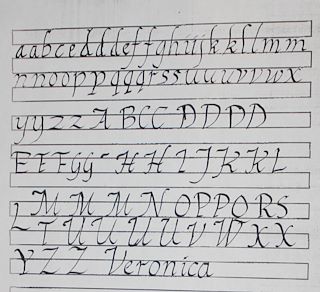 aabcedddeffghijjkkllmm
nnooppqqqrssuuuvvwx
yyzz A BCC DDDD
EFFGG HHIJKKL
LMMMNOPPQRS
TUUUUVWXX
YZZ Veronica